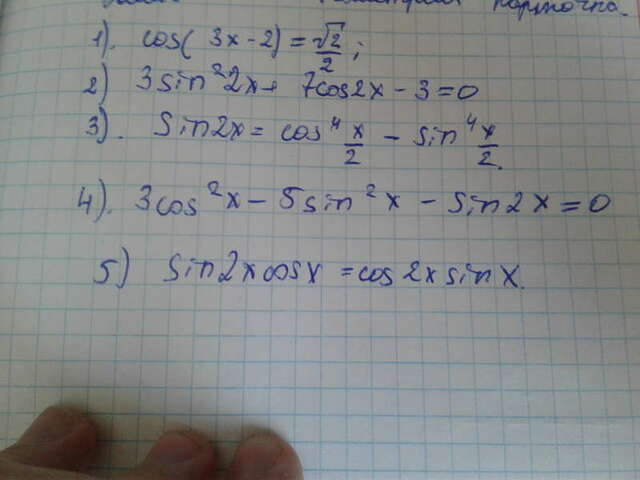 карточка.
1). cos(3x-2) = √2/2;
2) 3sin²2x + 7cos2x - 3 = 0
3). Sin2x = cos⁴ x/2 - sin⁴ x/2.
4). 3cos²x - 5sin²x - sin2x = 0
5) sin2xcosx = cos2xsinx.